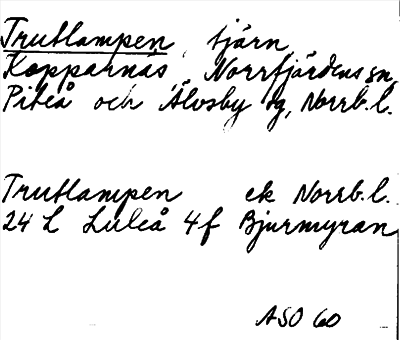 Trutlampen, tjärn,
Kopparnäs, Norrfjärdens sn,
Piteå och Älvsby tg, Norrb.l.
Trutlampen ek Norrb.l.
24 L Luleå 4f Bjurmyran
ASO 60